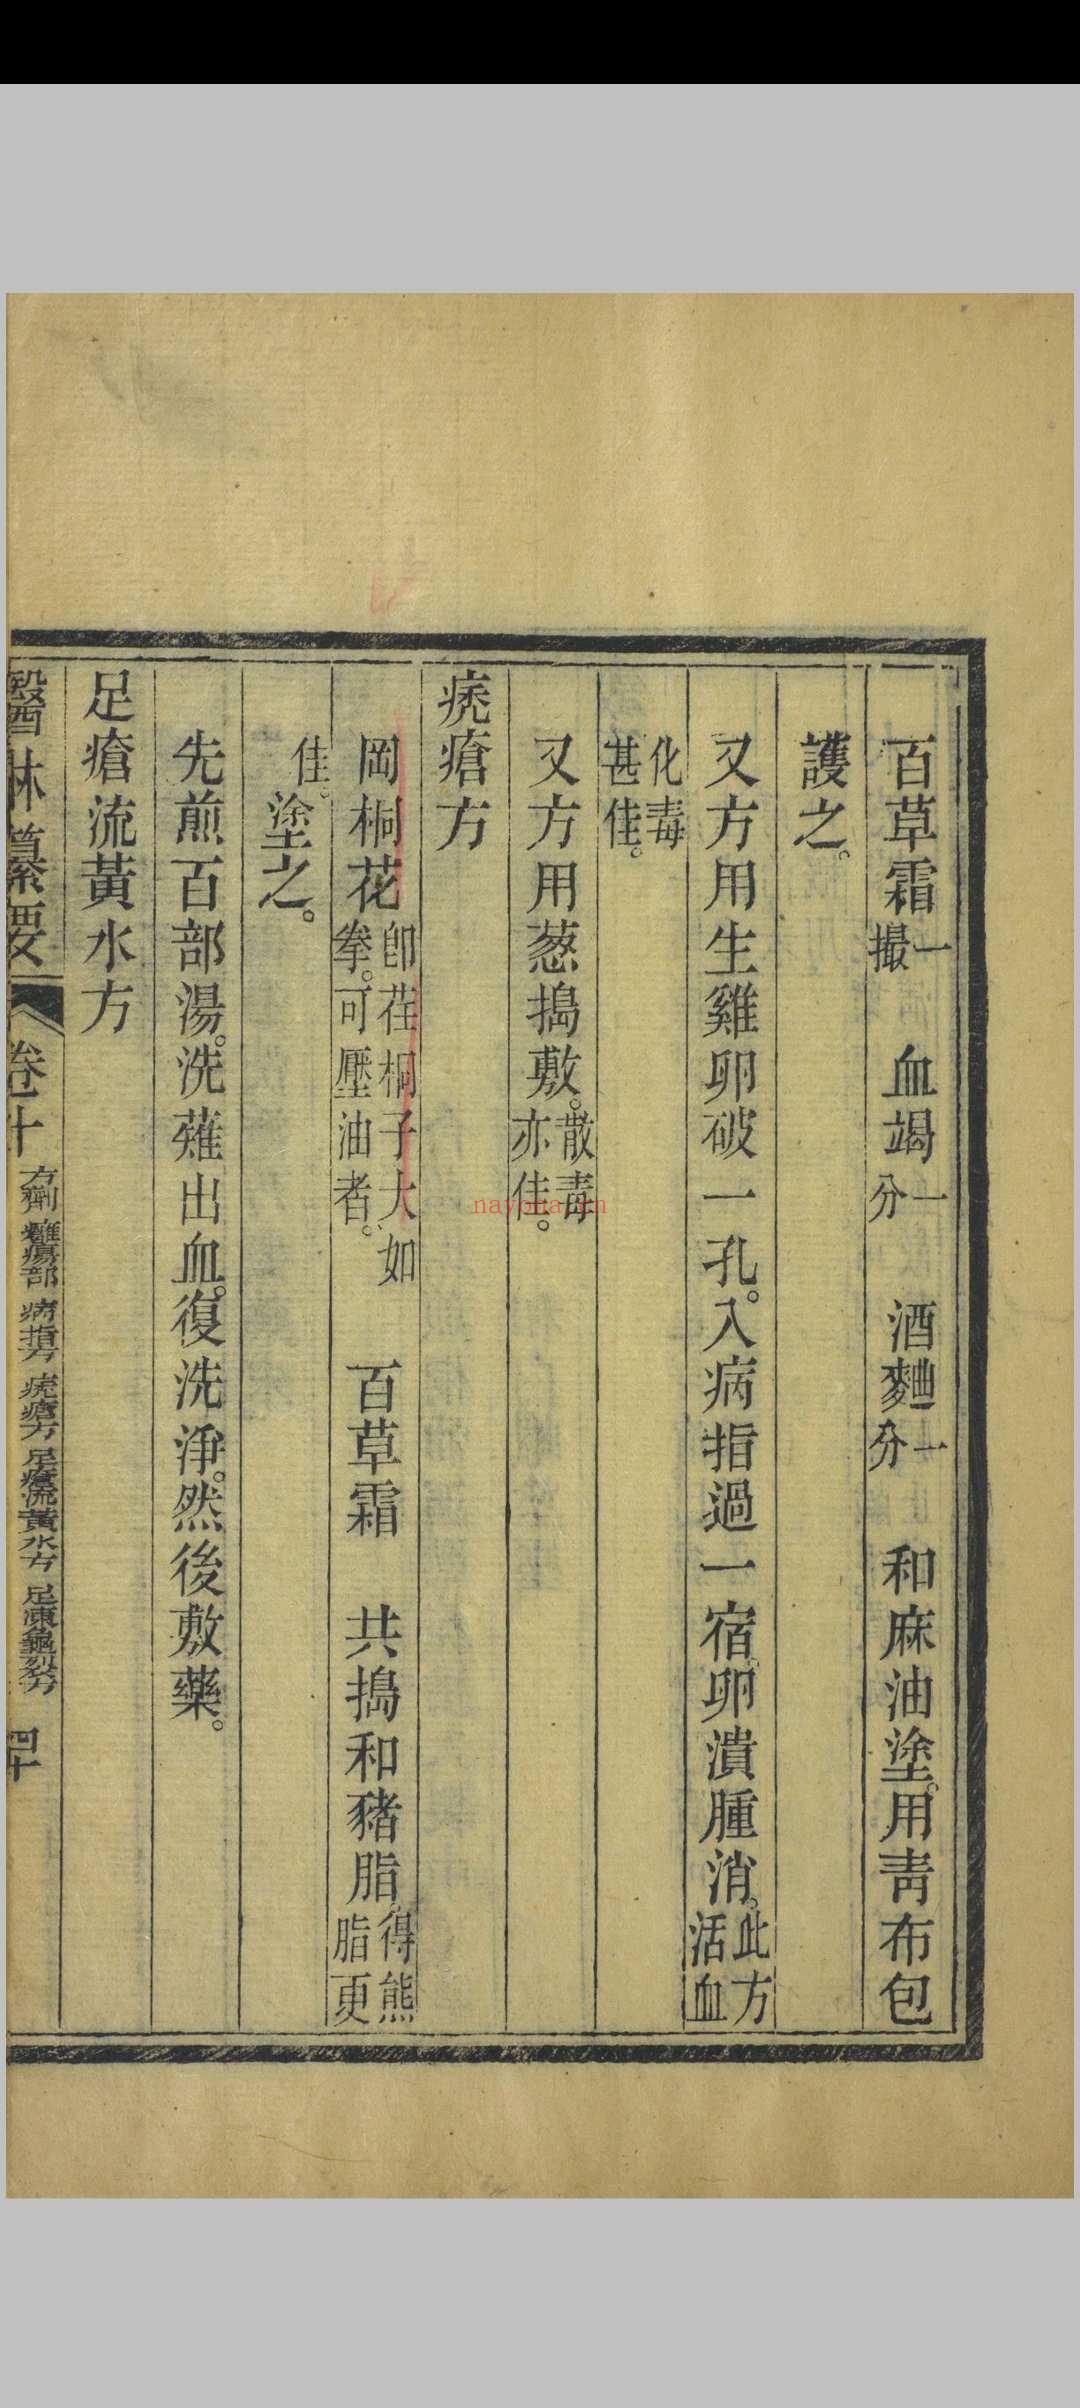 百草霜一撮　血竭一分　酒麯一分　和麻油塗。用青布包
護之。
又方用生雞卵破一孔。入病指過一宿。卵潰腫消。此方活血
化毒甚佳。
又方用葱搗敷。散毒亦佳。
禿瘡方
岡桐花卽荏桐子大如拳。可壓油者。　百草霜　共搗和豬脂。得熊脂更
佳。塗之。
先煎百部湯。洗薙出血。復洗淨。然後敷藥。
足瘡流黃水方
醫林纂要　卷十　方劑　癰瘍部　病指方　禿瘡方　足瘡流黃水方　足凍龜裂方　四十
nayona.cn